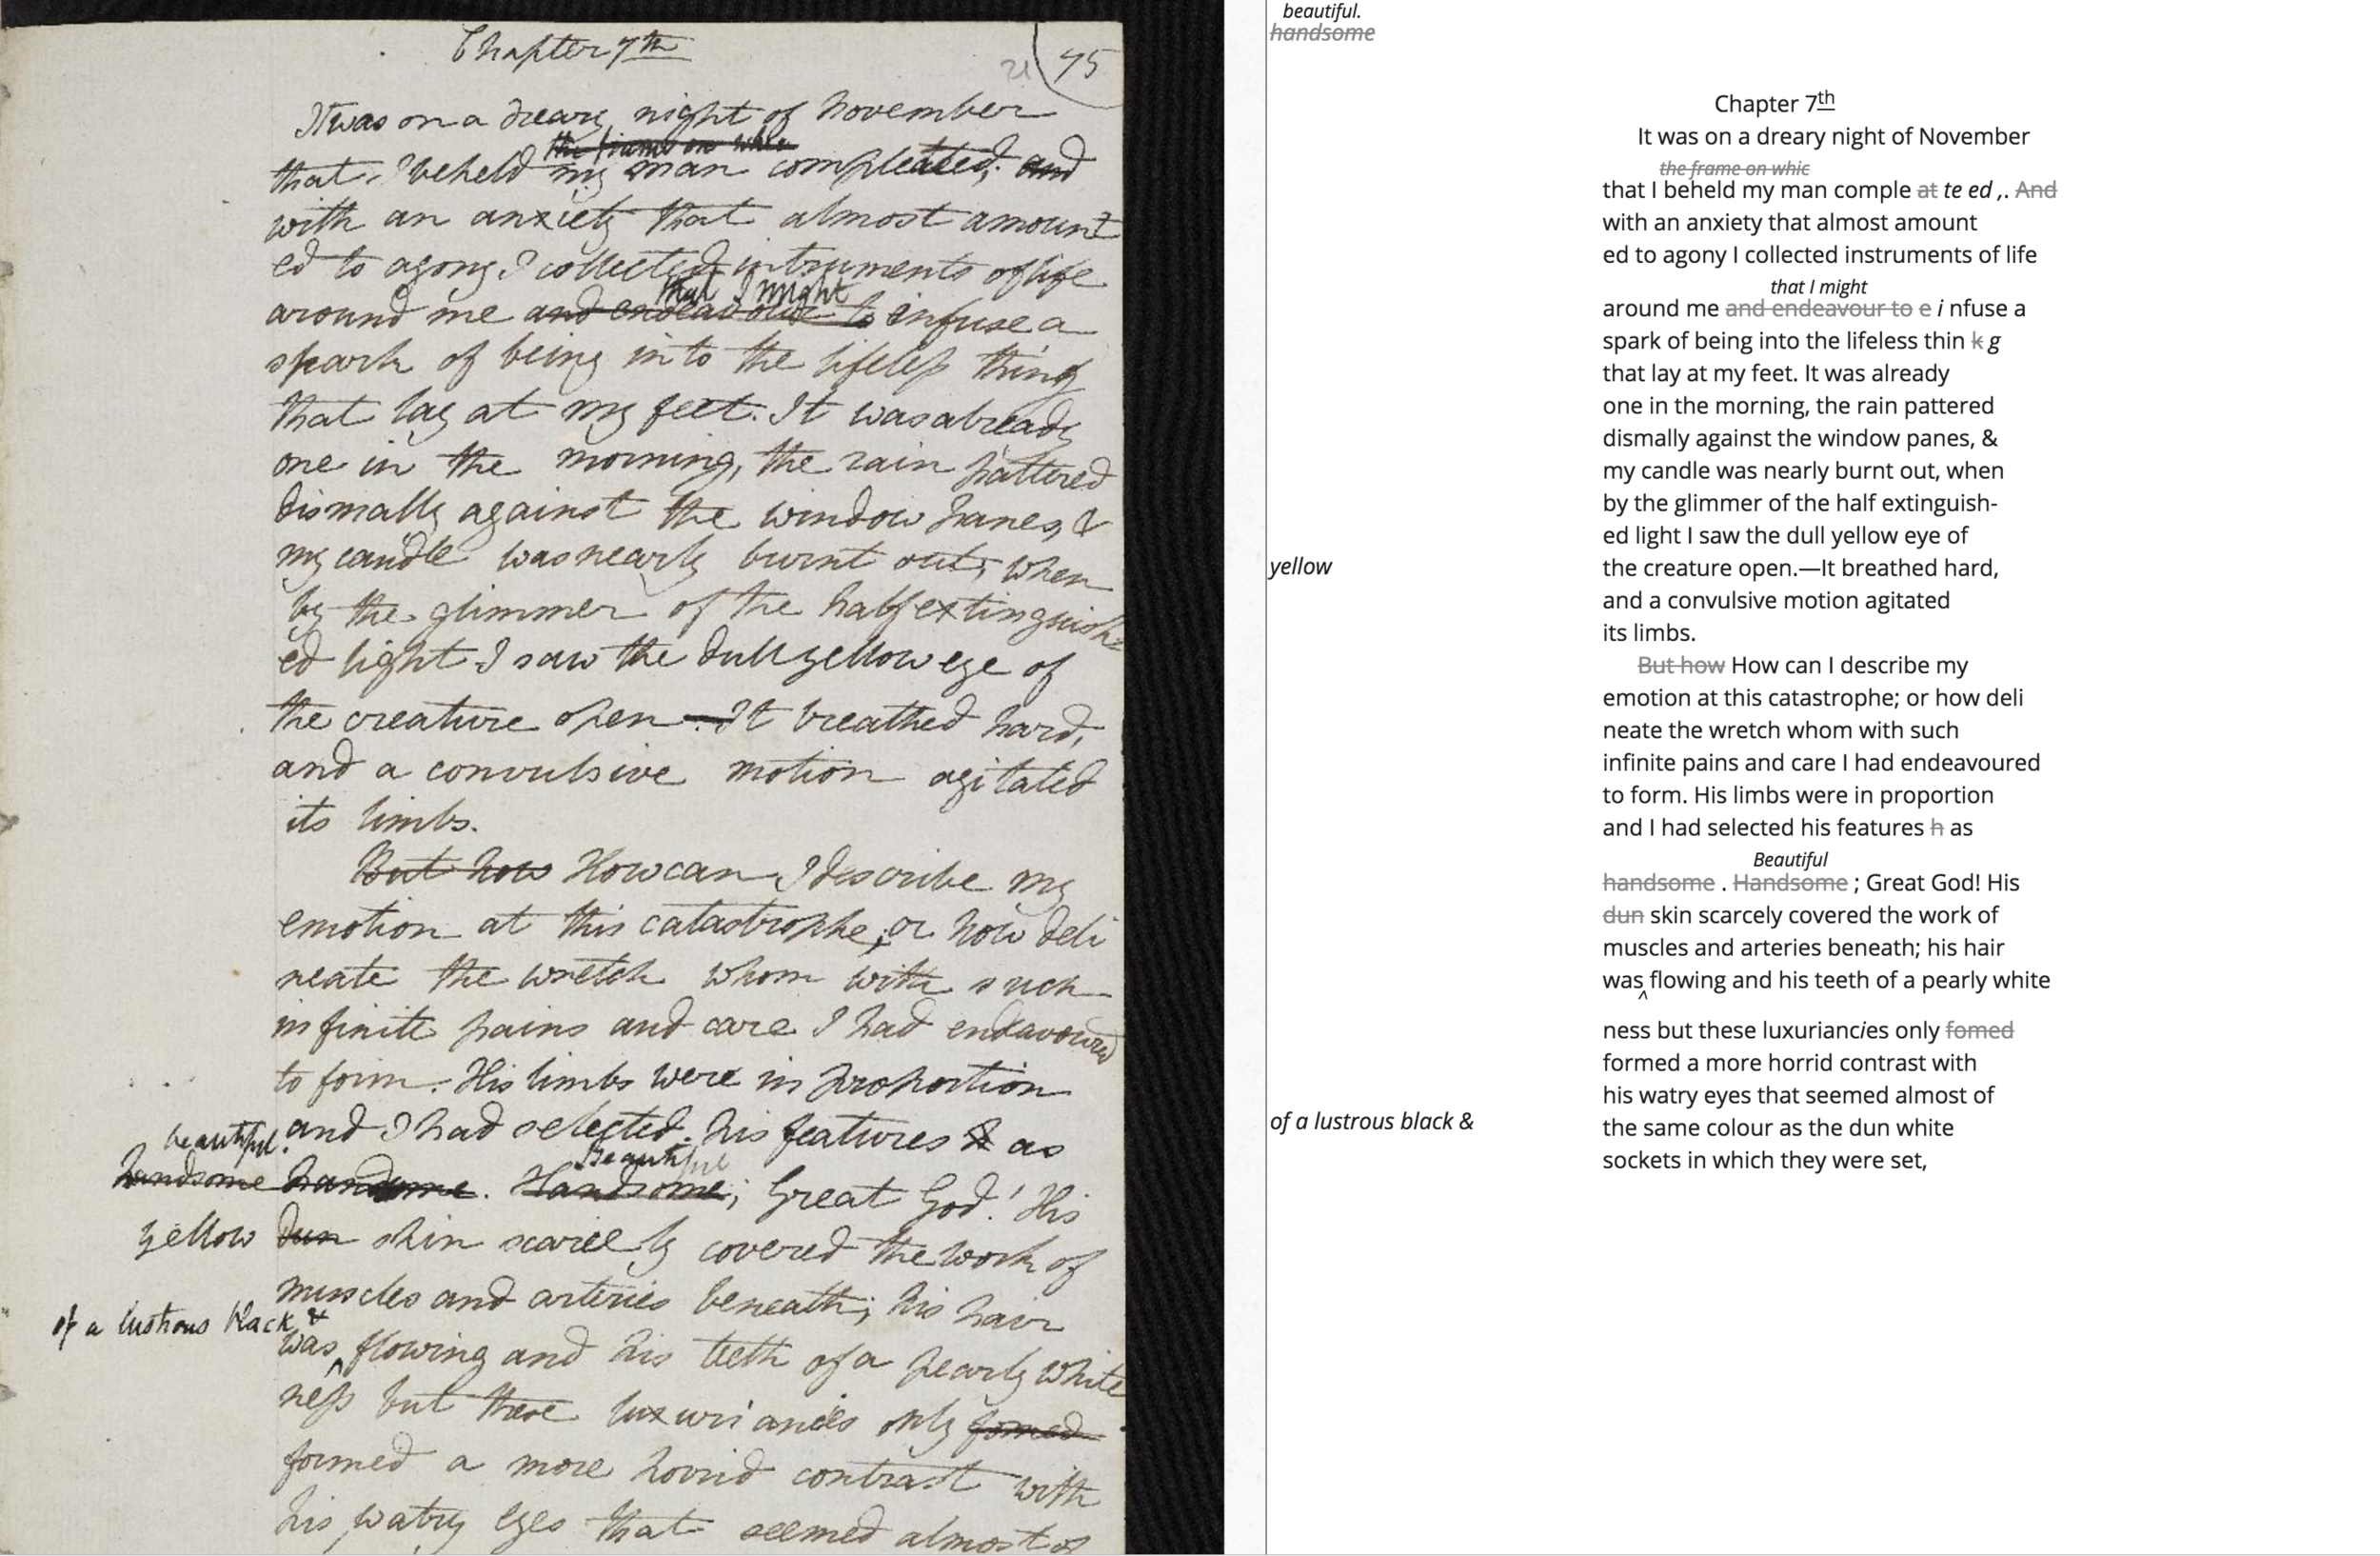 Chapter 7th
21
75
It was on a dreary night of November
the frame on whic
that I beheld my man compleated, and
with an anxiety that almost amount
ed to agony I collected intruments of life
that I might
around me and endeavour to infuse a
spark of being into the lifeless thing
that lay at my feet. It was already
one in the morning, the rain pattered
dismally against the window panes, &
my candle was nearly burnt out, when
by the glimmer of the half extinguish-
ed light I saw the dull yellow eye of
the creature open.—It breathed hard,
and a convulsive motion agitated
its limbs.
But how How can I describe my
emotion at this catastrophe; or how deli
neate the wretch whom with such
infinite pains and care I had endeavoured
to form. His limbs were in proportion
and I had selected his features h as
beautiful.
Beautiful
handsome handsome. Handsome; Great God! His
yellow dun skin scarcely covered the work of
muscles and arteries beneath; his hair
of a lustrous black &
was ^ flowing and his teeth of a pearly white
ness but these luxuriancies only fomed
formed a more horrid contrast with
his watry eyes that seemed almost of
beautiful.
handsome
Chapter 7th
It was on a dreary night of November
the frame on whic
that I beheld my man comple at te ed ,. And
with an anxiety that almost amount
ed to agony I collected instruments of life
that I might
around me and endeavour to e i nfuse a
spark of being into the lifeless thin k g
that lay at my feet. It was already
one in the morning, the rain pattered
dismally against the window panes, &
my candle was nearly burnt out, when
by the glimmer of the half extinguish-
ed light I saw the dull yellow eye of
yellow
the creature open.—It breathed hard,
and a convulsive motion agitated
its limbs.
But how How can I describe my
emotion at this catastrophe; or how deli
neate the wretch whom with such
infinite pains and care I had endeavoured
to form. His limbs were in proportion
and I had selected his features h as
Beautiful
handsome . Handsome ; Great God! His
dun skin scarcely covered the work of
muscles and arteries beneath; his hair
was ^ flowing and his teeth of a pearly white
ness but these luxuriancies only fomed
formed a more horrid contrast with
his watry eyes that seemed almost of
of a lustrous black &
the same colour as the dun white
sockets in which they were set,